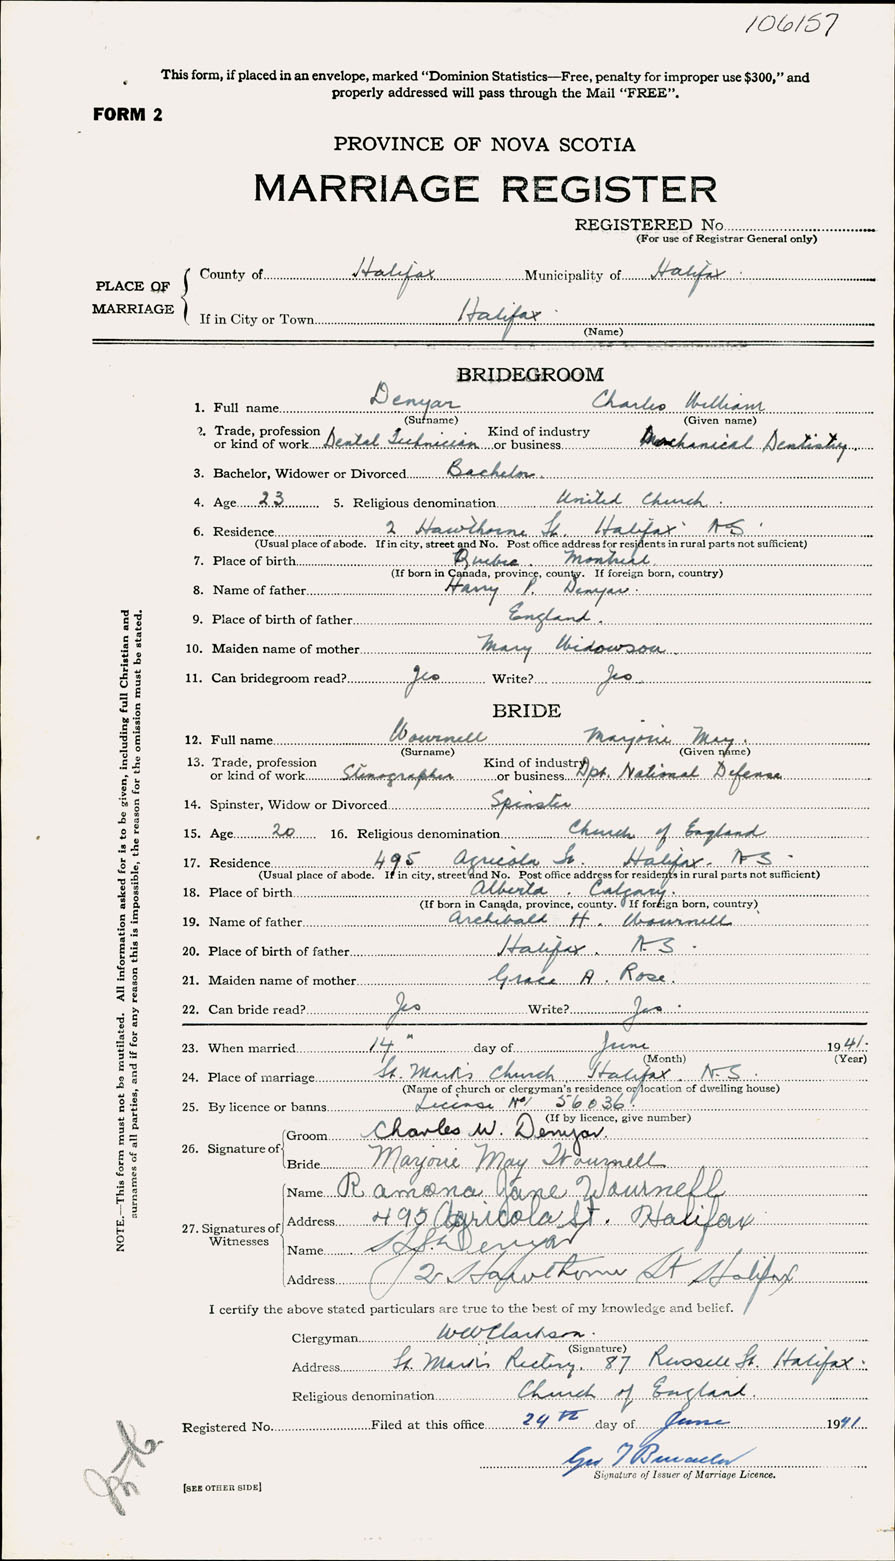 106157
This form, if placed in an envelope, marked "Dominion Statistics—Free, penalty for improper use $300," and
properly addressed will pass through the Mail "FREE".
FORM 2
PROVINCE OF NOVA SCOTIA
MARRIAGE REGISTER
REGISTERED No.
(For use of Registrar General only)
PLACE OF MARRIAGE
County of Halifax Municipality of Halifax
If in City or Town Halifax
(Name)
BRIDEGROOM
1. Full name Denyar Charles William
(Surname) (Given name)
2. Trade, profession or kind of work Dental Technician Kind of industry or business Mechanical Dentistry
3. Bachelor, Widower or Divorced Bachelor
4. Age 23 5. Religious denomination United Church
6. Residence 2 Hawthorne St. Halifax NS
(Usual place of abode. If in city, street and No. Post office address for residents in rural parts not sufficient)
7. Place of birth Quebec. Montreal
(If born in Canada, province, county. If foreign born, country)
8. Name of father Harry P. Denyar
9. Place of birth of father England.
10. Maiden name of mother Mary Widowson
11. Can bridegroom read? Yes Write? Yes
BRIDE
12. Full name Wournell Marjorie May.
(Surname) (Given name)
13. Trade, profession or kind of work Stenographer Kind of industry or business Dpt. National Defense
14. Spinster, Widow or Divorced Spinster
15. Age 20 16. Religious denomination Church of England
17. Residence 495 Agricola St. Halifax. NS
(Usual place of abode. If in city, street and No. Post office address for residents in rural parts not sufficient)
18. Place of birth Alberta. Calgary.
(If born in Canada, province, county. If foreign born, country)
19. Name of father Archibald H. Wournell
20. Place of birth of father Halifax. N.S.
21. Maiden name of mother Grace A. Rose.
22. Can bride read? Yes Write? Yes.
23. When married 14" day of June 1941.
(Month) (Year)
24. Place of marriage St. Mark's Church Halifax. N.S.
(Name of church or clergyman's residence or location of dwelling house)
25. By licence or banns License No. 56036.
(If by licence, give number)
26. Signature of
Groom Charles W. Denyar.
Bride Marjorie May Wournell
27. Signatures of Witnesses
Name Ramona Jane Wournell
Address 495 Agricola St. Halifax
Name Denyar
Address 2 Hawthorne St Halifax
I certify the above stated particulars are true to the best of my knowledge and belief.
Clergyman WW Clarkson.
(Signature)
Address St. Mark's Rectory, 87 Russell St. Halifax.
Religious denomination Church of England.
Registered No. Filed at this office 24th day of June 1941
Geo T
Signature of Issuer of Marriage Licence.
[SEE OTHER SIDE]
NOTE.—This form must not be mutilated. All information asked for is to be given, including full Christian and
surnames of all parties, and if for any reason this is impossible, the reason for the omission must be stated.